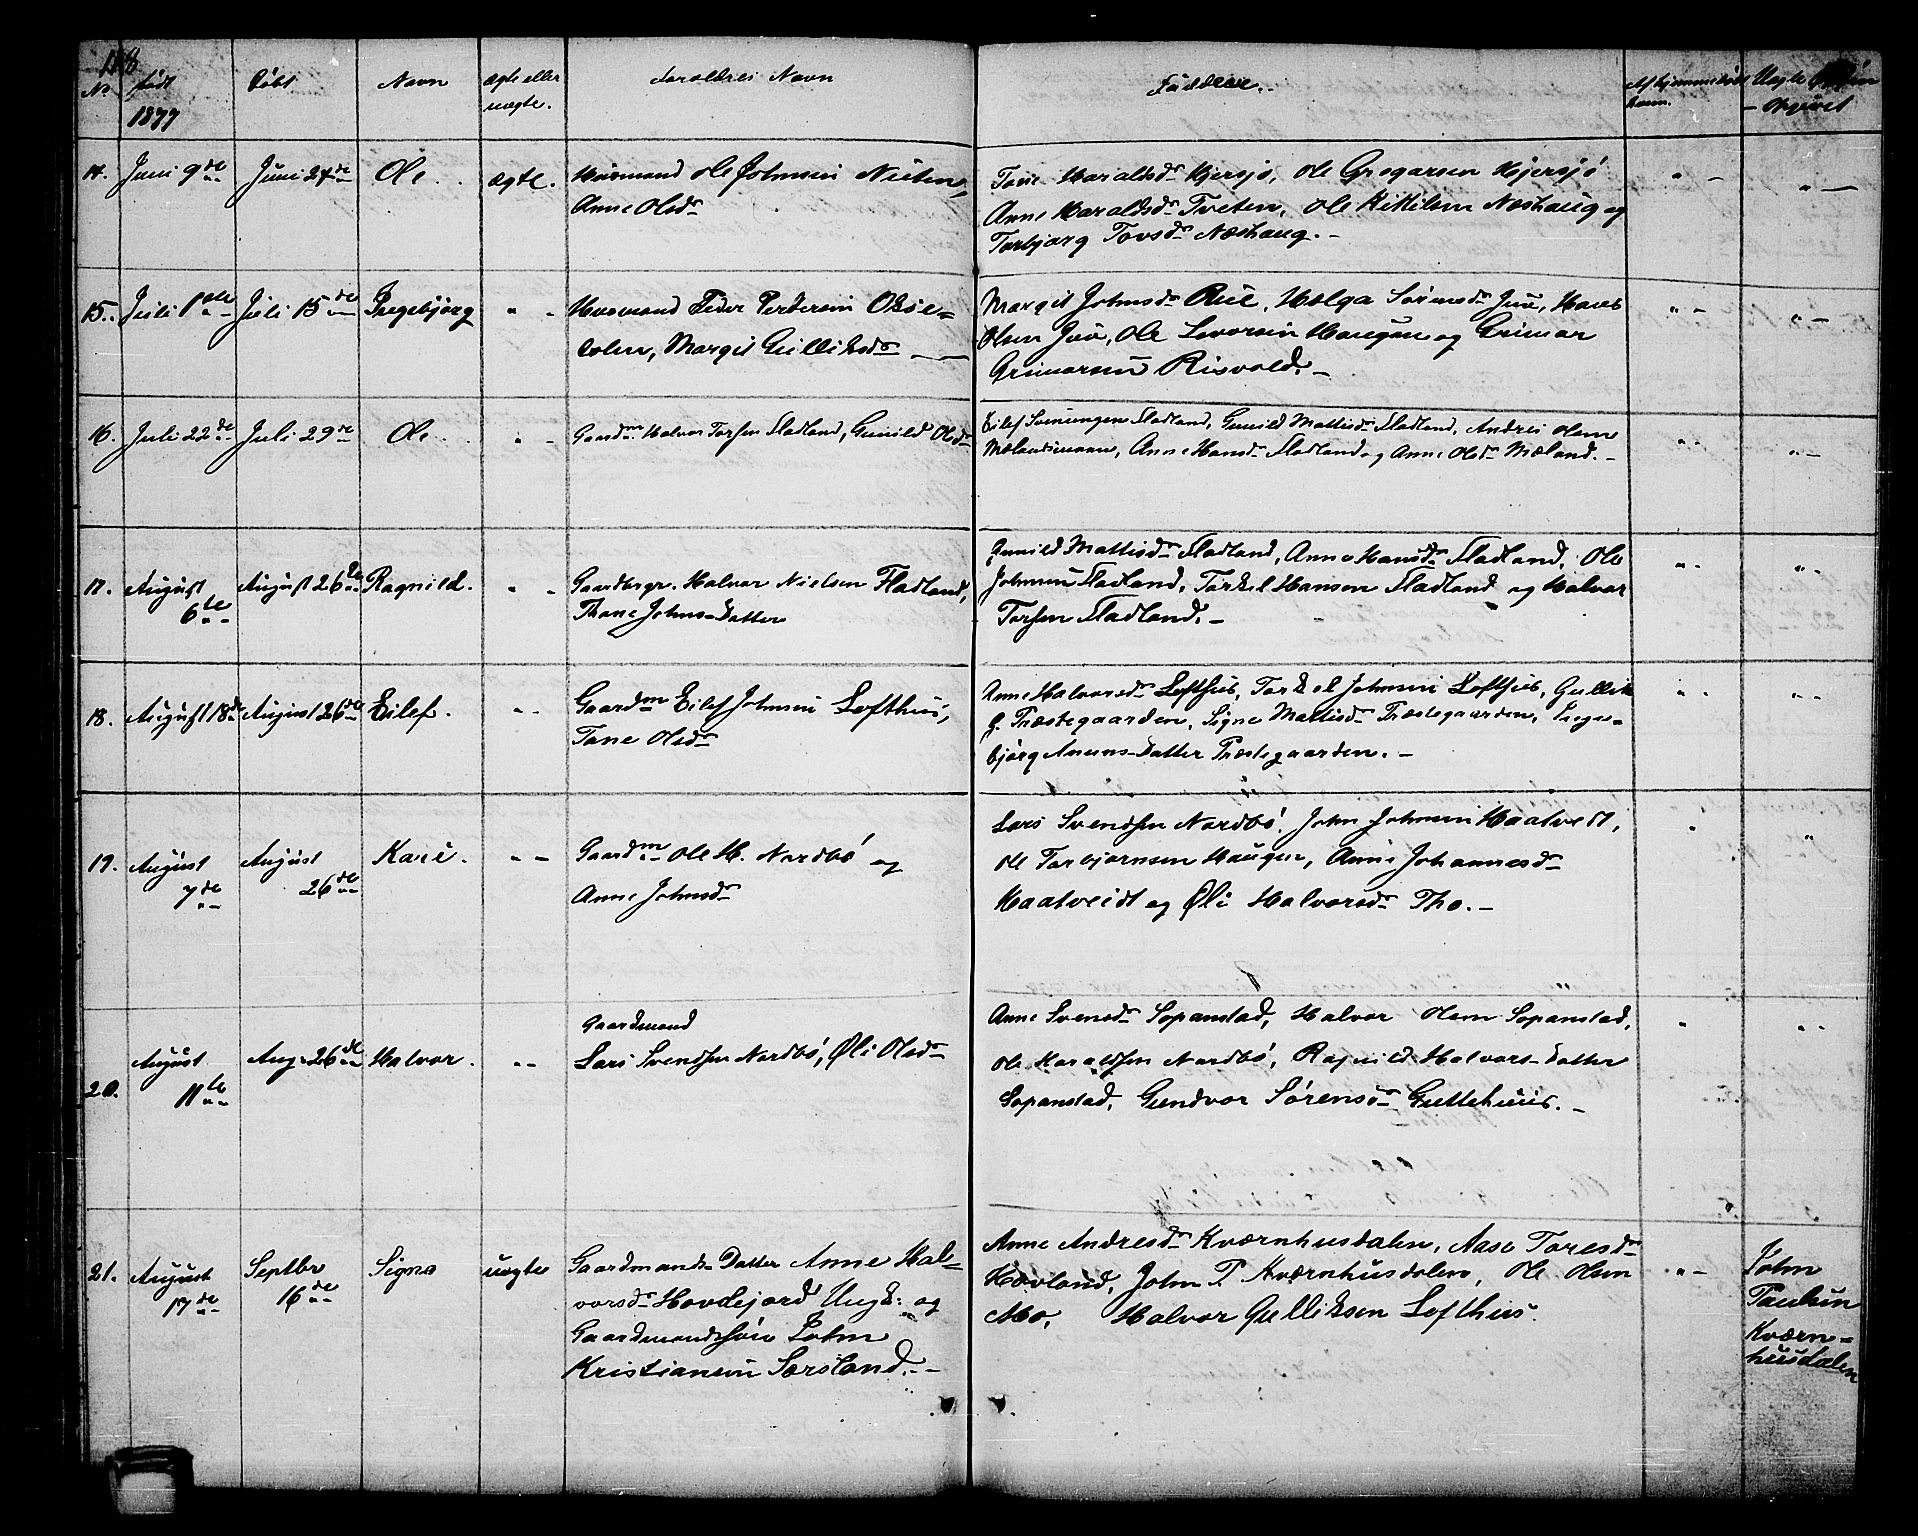 118
No Født Døbt Navn Ægte eller Foreldres Navn Faddere. Af hjemmedøbt Uægte
1877 uægte. havn. Opgivet
14. Juni 9de Juni 24de Ole. ægte. Husmand Ole Johnsen
Anne Olsdr
Tone Haraldsdr Hjersjø, Ole Gregarsen Hjersjø
Anne Haraldsdr Tveten, Ole Kittilsen Næshaug og
Torbjørg Tovsdr Næshaug. –
15. Juli 1ste Juli 15de Ingebjørg " Husmand Peder Pedersen Oksie=
holm, Margit Gulliksdr —
Margit Johnsdr Rue, Helga Sørensdr Juv, Hans
Olsen Juv, Ole Levorsen Haugen og Grimar
Grimarsen Risvold. –
16. Juli 22de Juli 29de Ole. " Gaardm. Halvor Torsen Fladland, Gunild Olsdr
Eilef Sveinungsen Fladland, Gunild Mattisdr Fladland, Andres Olsen
Mælandsmoen, Anne Hansdr Fladland og Anne Olsdr Mæland. –
17. August August 26de Ragnild. " Gaardbrgr. Halvor Nielsen Fladland,
6te Thone Johns-Datter
Gunild Mattisdr Fladland, Anne Hansdr Fladland, Ole
Johnsen Fladland, Torkel Hansen Fladland og Halvor
Torsen Fladland. –
18. August 18de August 26de Eilef. " Gaardm Eilef Johnsen Lofthus,
Tone Olsdr
Anne Halvorsdr Lofthus, Torkel Johnsen Lofthus, Gullik
G. Præstegaarden, Signe Mattisdr Præstegaarden, Inge=
bjørg Anuns-Datter Præstegaarden. –
19. August August Kari. " Gaardm Ole H. Nordbø og
7de 26de Anne Johnsdr
Lars Svendsen Nordbø, John Johnsen Haatveit,
Ole Torbjørnsen Haugen, Anne Johannesdr
Haatveidt og Øli Halvorsdr Tho. –
20. August Aug. 26de Halvor. " Gaardmand
11te Lars Svendsen Nordbø, Øli Olsdr
Anne Svensdr Sopanstad, Halvor Olsen Sopanstad,
Ole Haraldsen Nordbø, Ragnild Halvors-Datter
Sopanstad, Gundvor Sørensdr Guttehuus. –
21. August Septbr Signe uægte Gaardmands-Datter Anne Hal=
17de 16de vorsdr Hovdejord Ungk: og
Gaardmandssøn John
Kristiansen Sørsland. –
Anne Andresdr Kværnhusdalen, Aase Toresdr
Hovland, John P. Kværnhusdalen, Ole Olsen
Mo, Halvor Gulliksen Lofthus.
John
Paulsen
Kværn=
husdalen